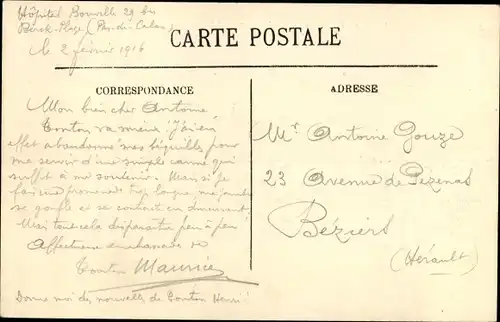 Hôpital Bouville 29 bis
Berck-Plage (Pas-de-Calais)
le 2 février 1916
CARTE POSTALE
CORRESPONDANCE
Mon bien cher Antoine
Tonton va mieux. J'ai en
effet abandonné mes béquilles pour
me servir d'une simple canne qui
suffit à me soutenir. Mais si je
fais une promenade trop longue, ma jambe
se gonfle et se
Mais tout cela disparaîtra peu à peu
Affectueux de
Tonton Maurice
Donne moi des nouvelles de Tonton Henri
ADRESSE
Mr Antoine Gouze
23 Avenue de Pézenas
Béziers
(Hérault)